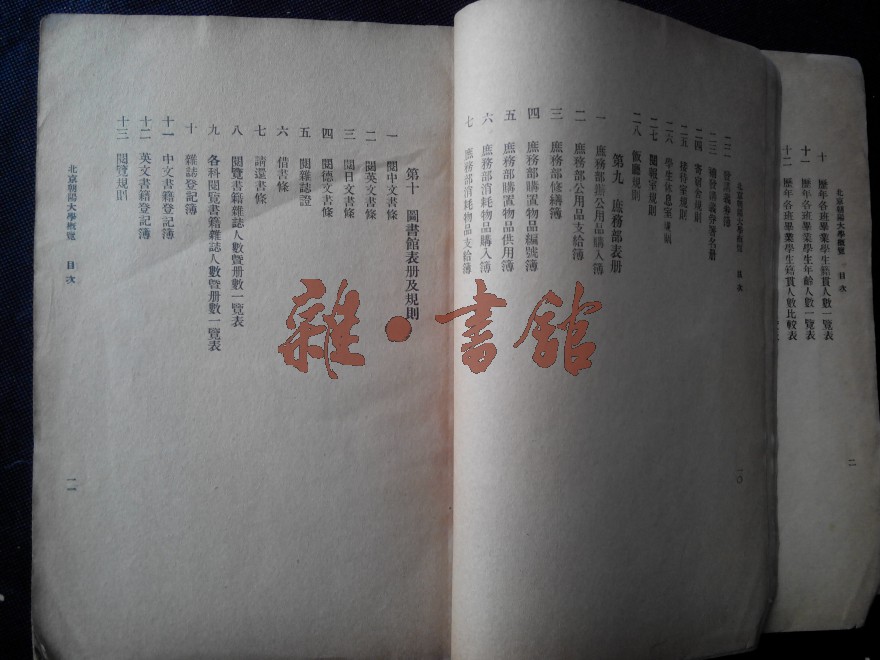 北京朝陽大學概覽 目次
十 歷年各班畢業學生籍貫人數一覽表
十一 歷年各班畢業學生年齡人數一覽表
十二 歷年各班畢業學生籍貫人數比較表
二
北京朝陽大學概覽 目次
二二 發講義券簿
二三 補發講義券署名册
二四 寄宿舍規則
二五 接待室規則
二六 學生休息室規則
二七 閱報室規則
二八 飯廳規則
第九 庶務部表册
一 庶務部辦公用品購入簿
二 庶務部公用品支給簿
三 庶務部修繕簿
四 庶務部購置物品編號簿
五 庶務部購置物品供用簿
六 庶務部消耗物品購入簿
七 庶務部消耗物品支給簿
一〇
第十 圖書館表册及規則
一 閱中文書條
二 閱英文書條
三 閱日文書條
四 閱德文書條
五 閱雜誌證
六 借書條
七 請還書條
八 閱覽書籍雜誌人數暨册數一覽表
九 各科閱覽書籍雜誌人數暨册數一覽表
十 雜誌登記簿
十一 中文書籍登記簿
十二 英文書籍登記簿
十三 閱覽規則
北京朝陽大學概覽 目次
一一
雜·書館